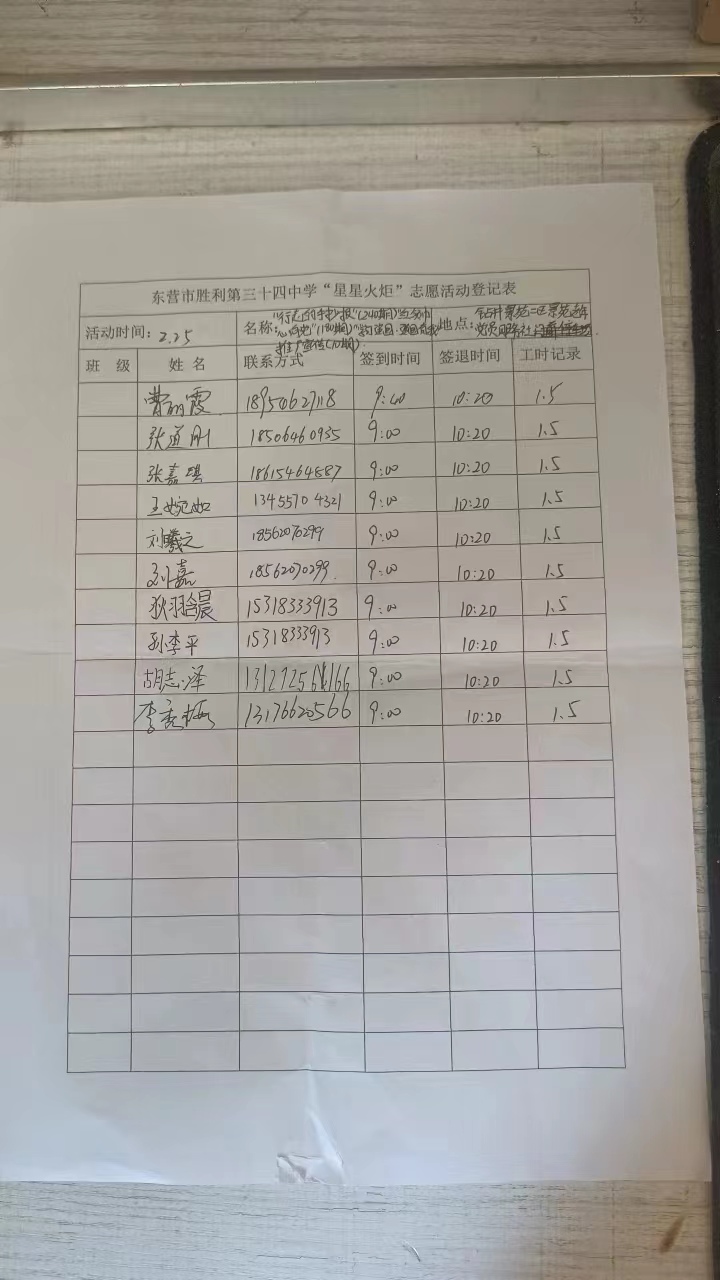 东营市胜利第三十四中学“星星火炬”志愿活动登记表
活动时间：2.25 名称： 地点：
班 级 姓 名 联系方式 签到时间 签退时间 工时记录
曹丽霞 18950627118 9:00 10:20 1.5
张道刚 18506460935 9:00 10:20 1.5
张嘉琪 18615464887 9:00 10:20 1.5
王婉如 13455704321 9:00 10:20 1.5
刘曦之 18562070299 9:00 10:20 1.5
刘嘉 18562070299 9:00 10:20 1.5
狄羽晗晨 15318333913 9:00 10:20 1.5
孙李平 15318333913 9:00 10:20 1.5
胡志泽 9:00 10:20 1.5
李秀梅 13176620566 9:00 10:20 1.5